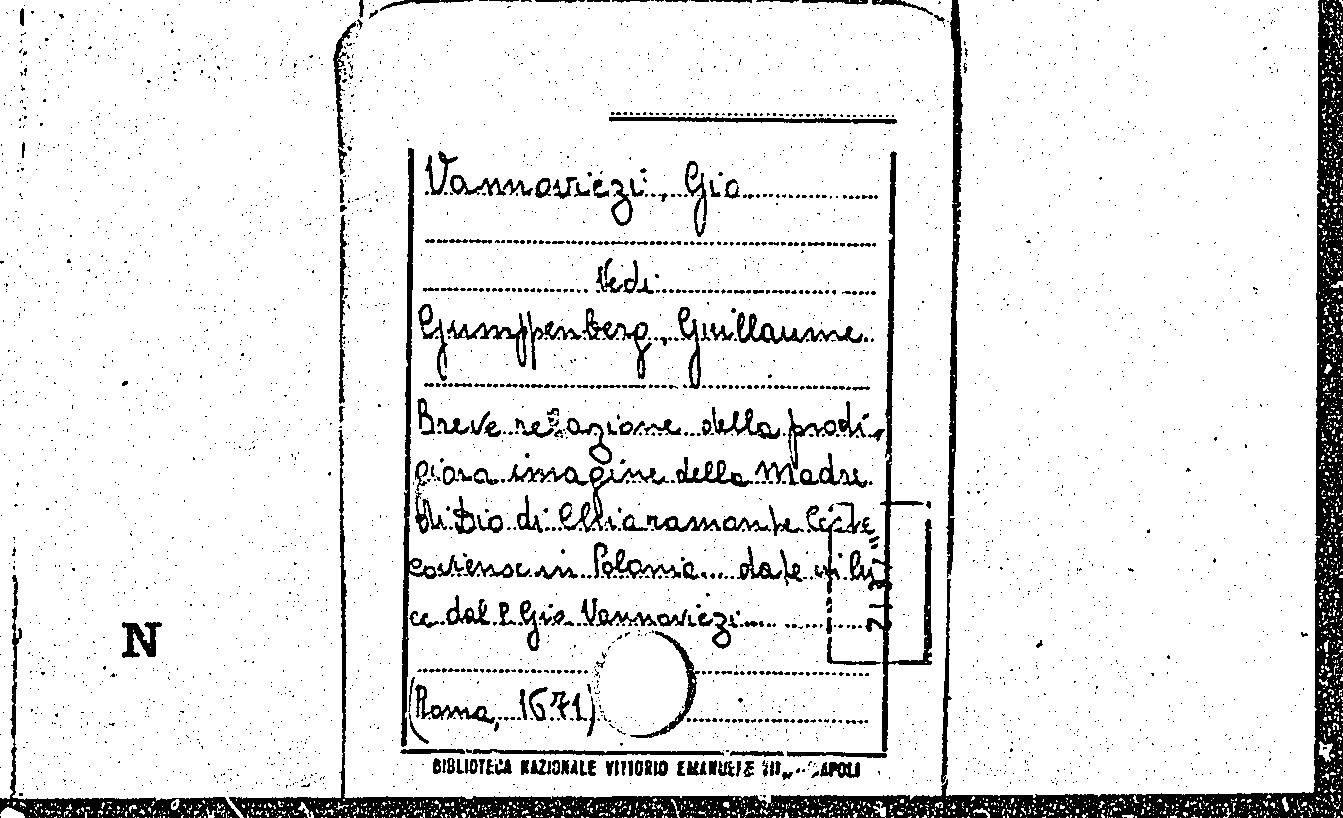 Vannoviezi, Gio
Vedi
Gumppenberg, Guillaume
Breve relazione della prodi-
giosa imagine della Madre
di Dio di Chiaramonte
in Polonia... date in lu
ce dal P. Gio Vannoviezi...
(Roma, 1671)
N
BIBLIOTECA NAZIONALE VITTORIO EMANUELE III NAPOLI